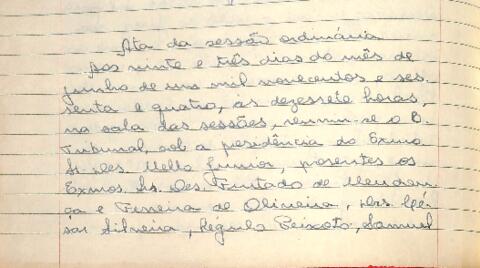 Ata da sessão ordinária
Aos vinte e três dias do mês de
junho de um mil novecentos e ses-
senta e quatro, às dezessete horas,
na sala das sessões, reuniu-se o E.
Tribunal sob a presidência do Exmo.
Sr. Des. Mello Junior, presentes os
Exmos. Srs. Des. Furtado de Mendon-
ça e Ferreira de Oliveira, Drs. Cé-
sar Silveira, Régulo Peixoto, Samuel